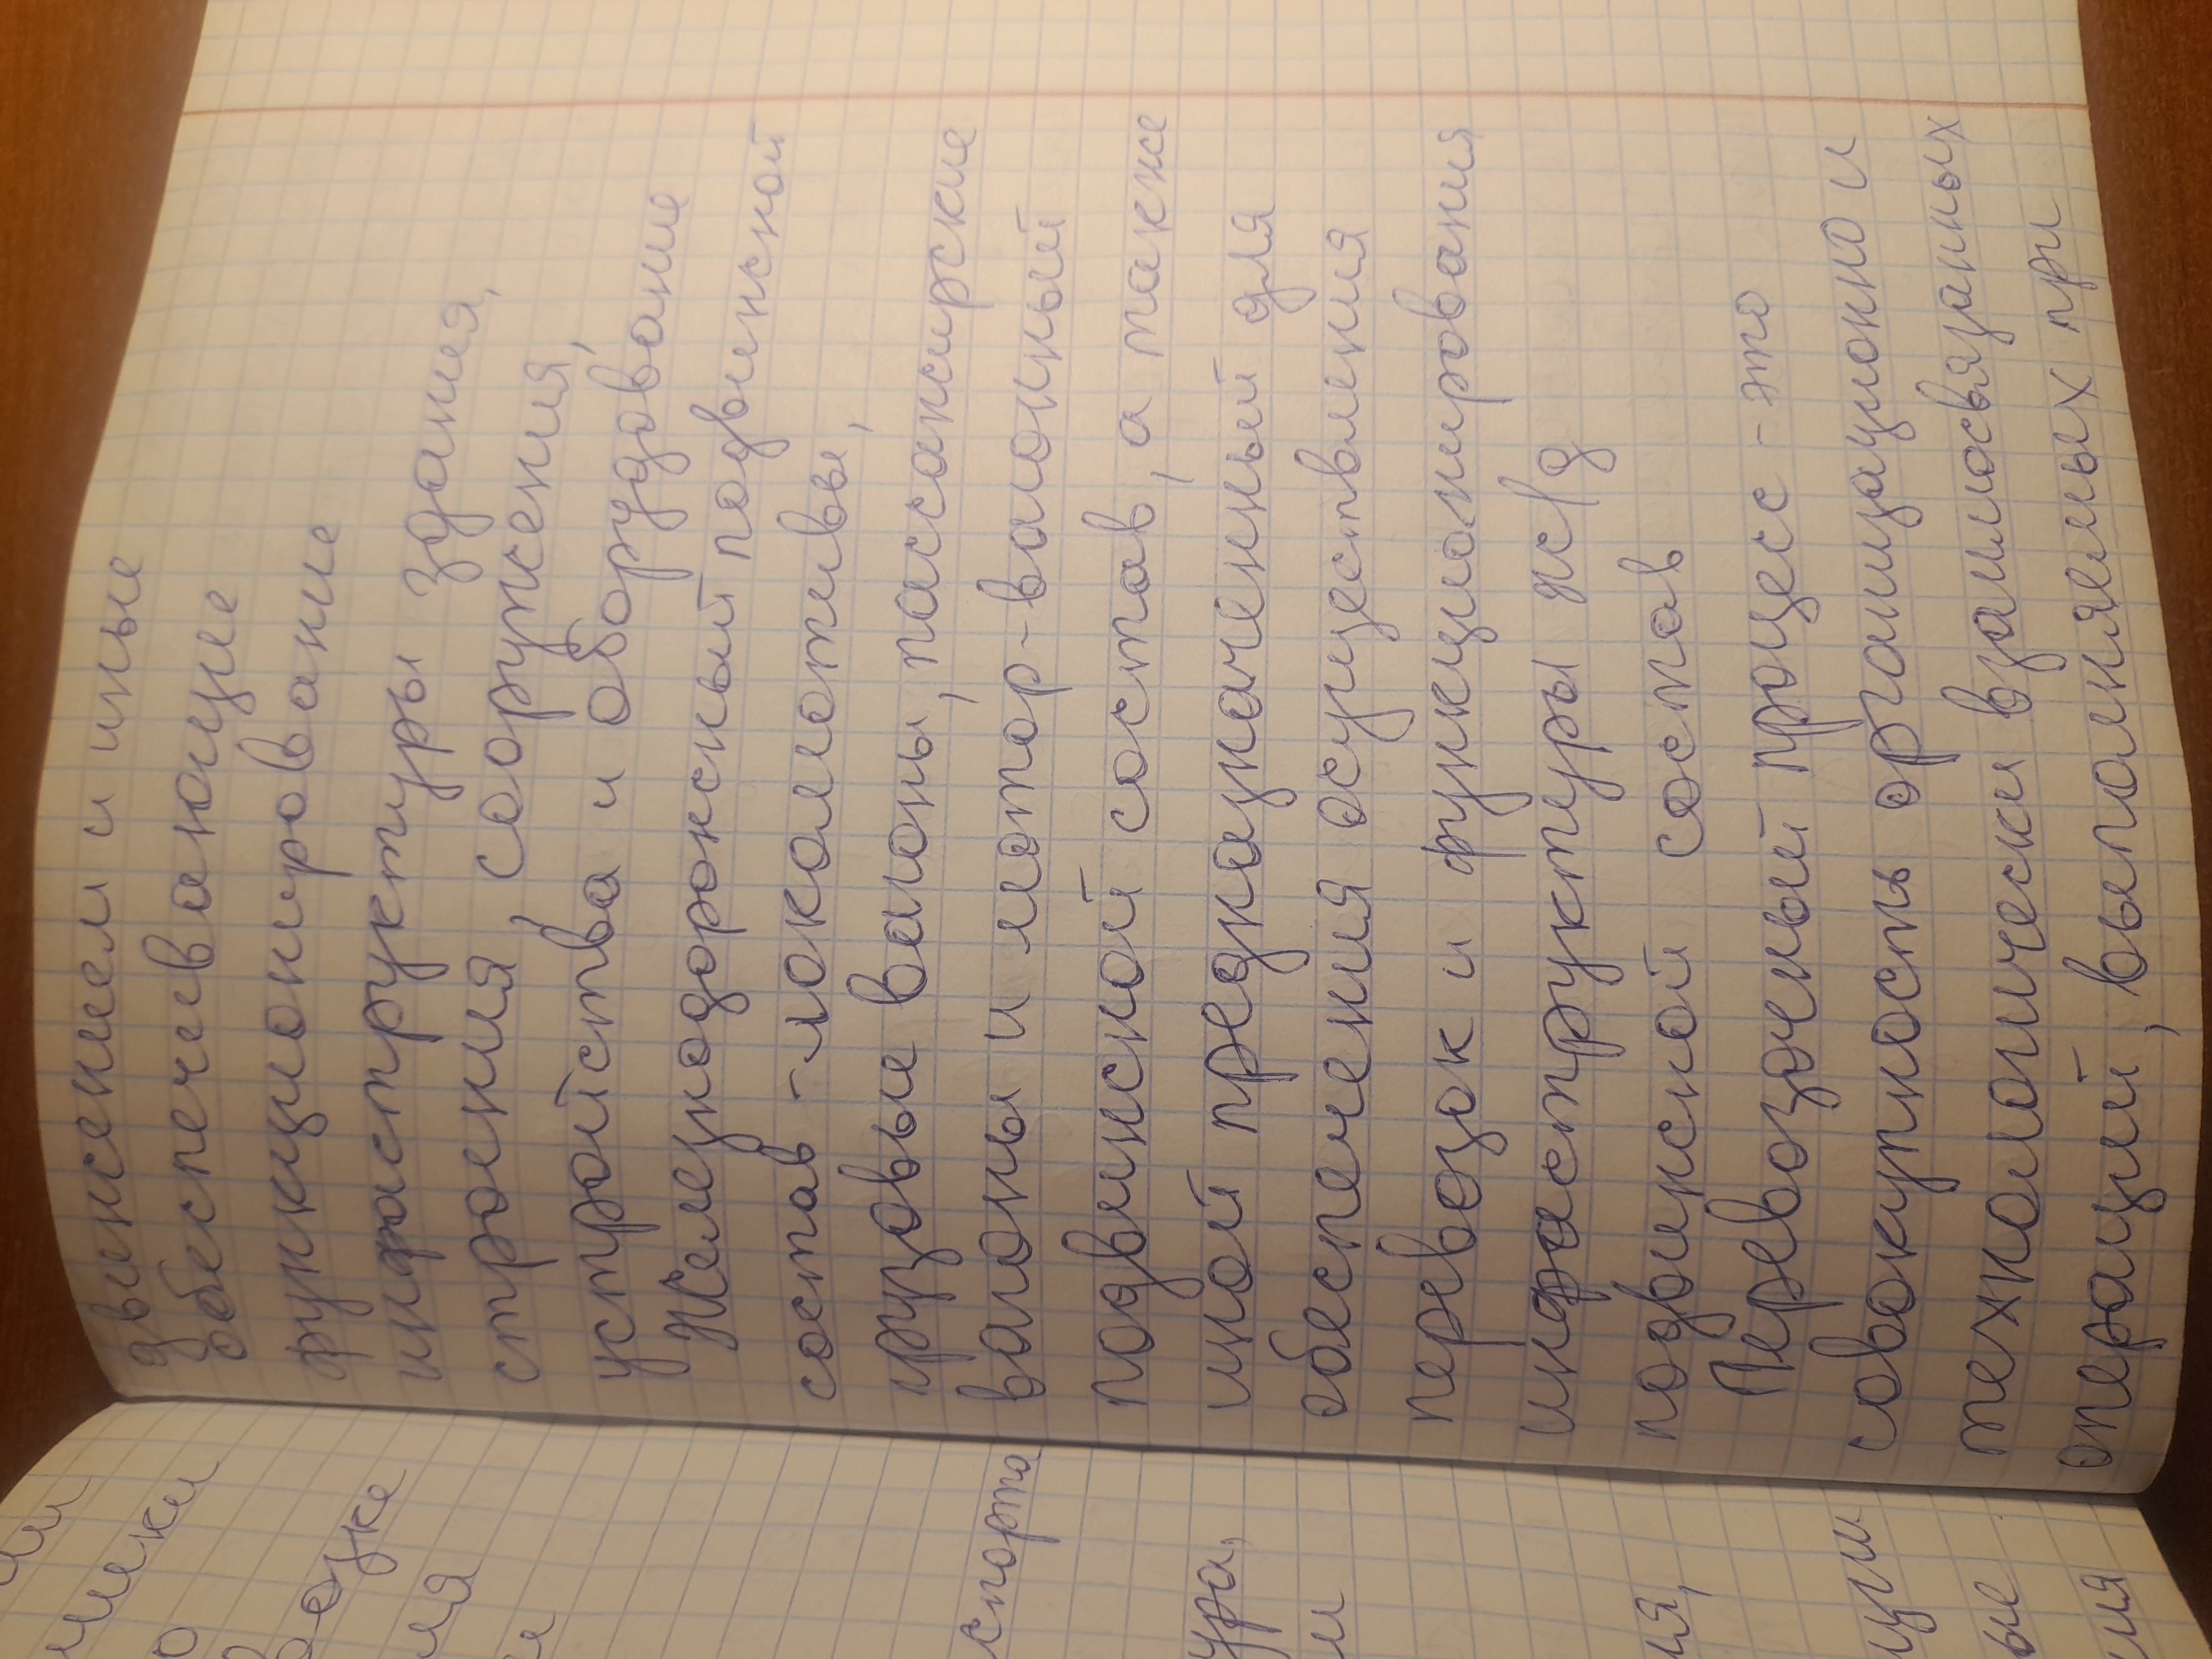 движением и иные
обеспечивающие
функционирование
инфраструктуры здания,
строения, сооружения,
устройства и оборудование
Железнодорожный подвижной
состав - локомотивы,
грузовые вагоны, пассажирские
вагоны и мотор-вагонный
подвижной состав, а также
иной предназначенный для
обеспечения осуществления
перевозок и функционирования
инфраструктуры ж/д
подвижной состав
Перевозочный процесс - это
совокупность организационно и
технологически взаимосвязанных
операций, выполняемых при